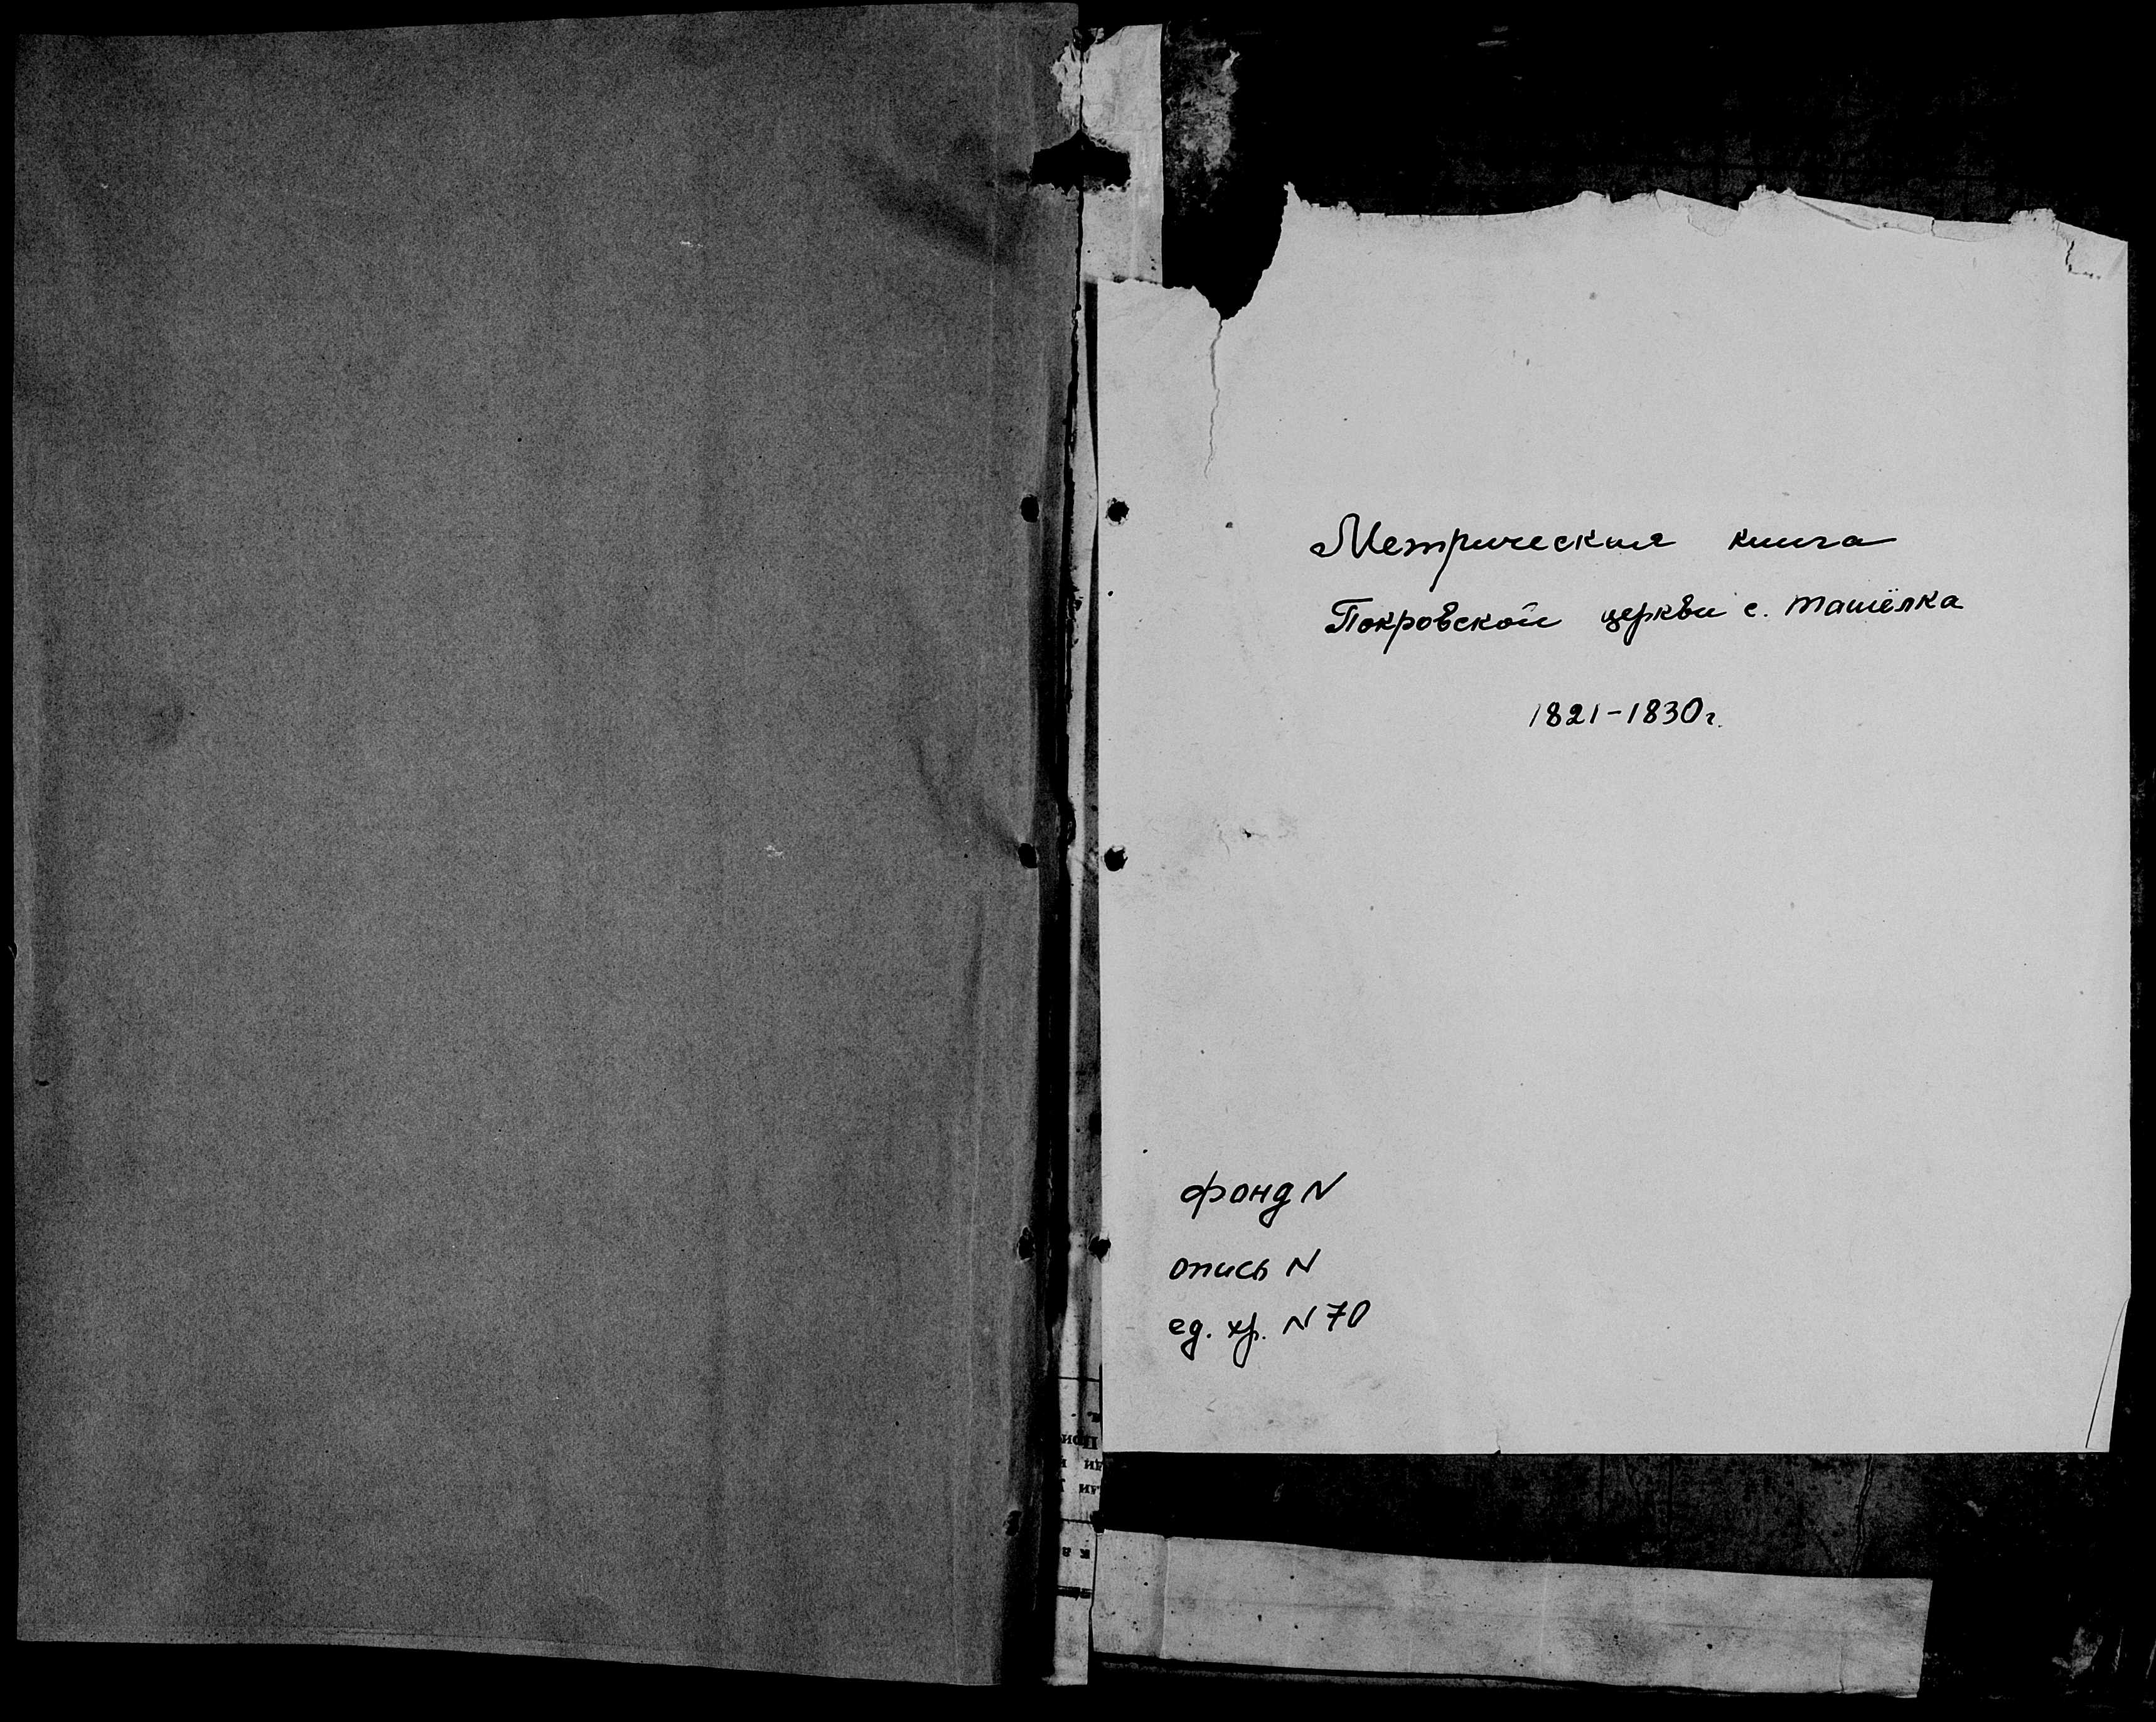 Метрическая книга
Покровской церкви с. Ташёлка
1821-1830г.
фонд N
опись N
ед. хр. N 70